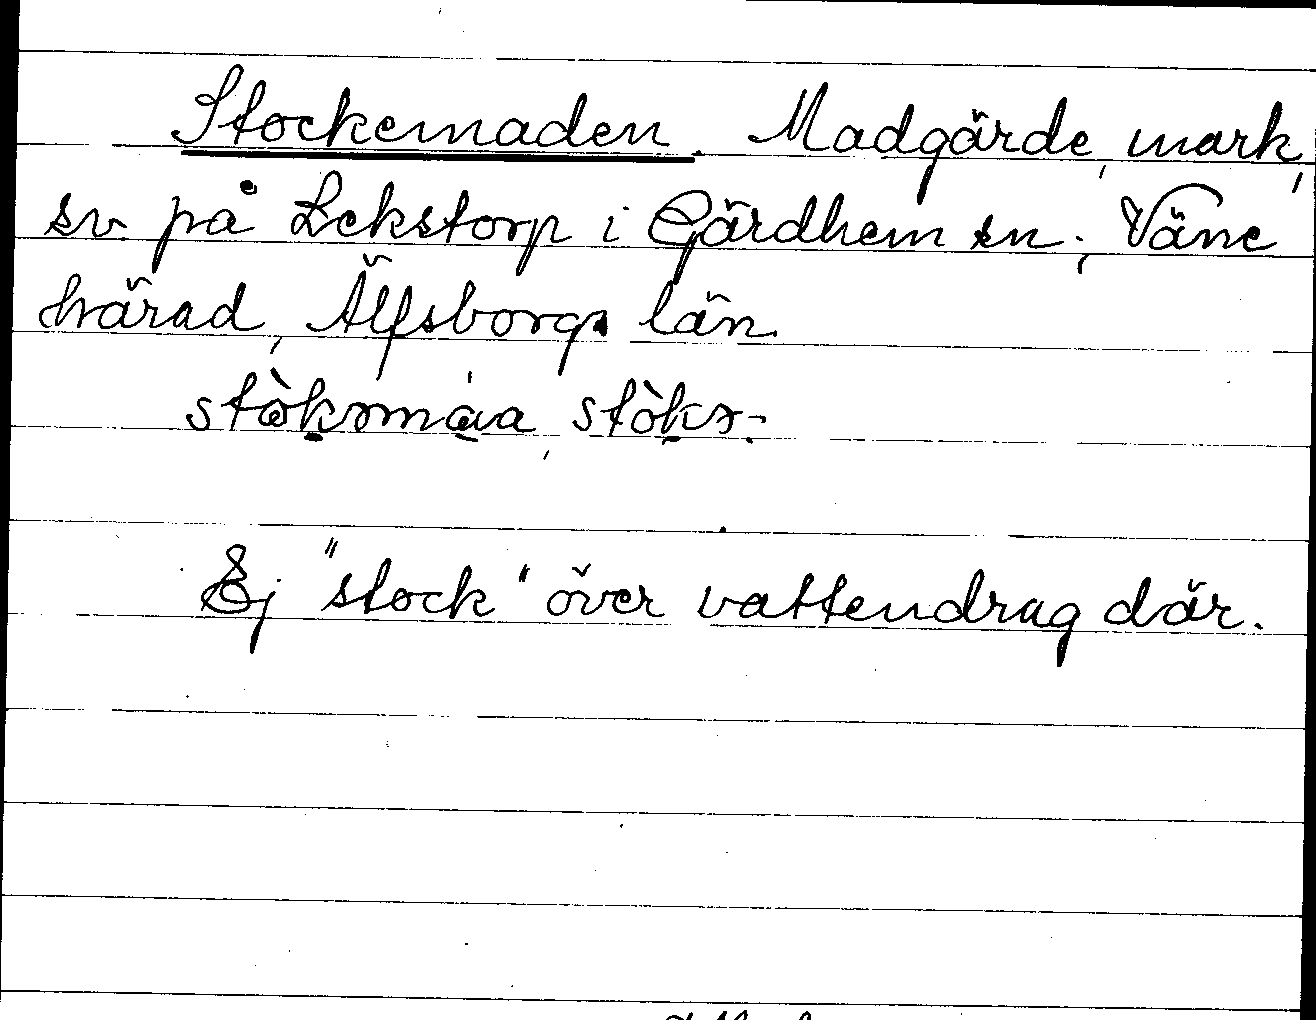 Stockemaden. Madgärde, mark,
sv. på Lekstorp i Gärdhem sn; Väne
härad, Älfsborgs län.
stòkəmáa, stòkə-
Ej "stock" över vattendrag där.